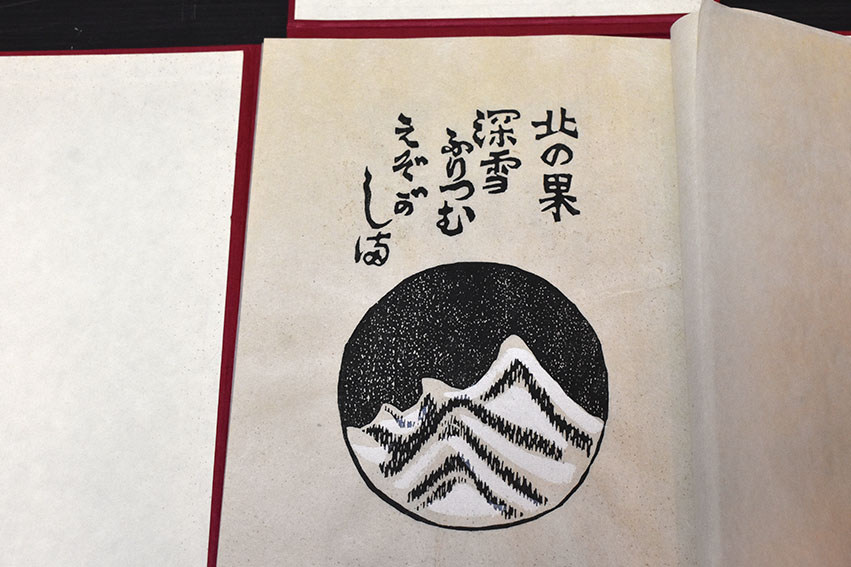 北の果
深雪
ふりつむ
えぞが
しま